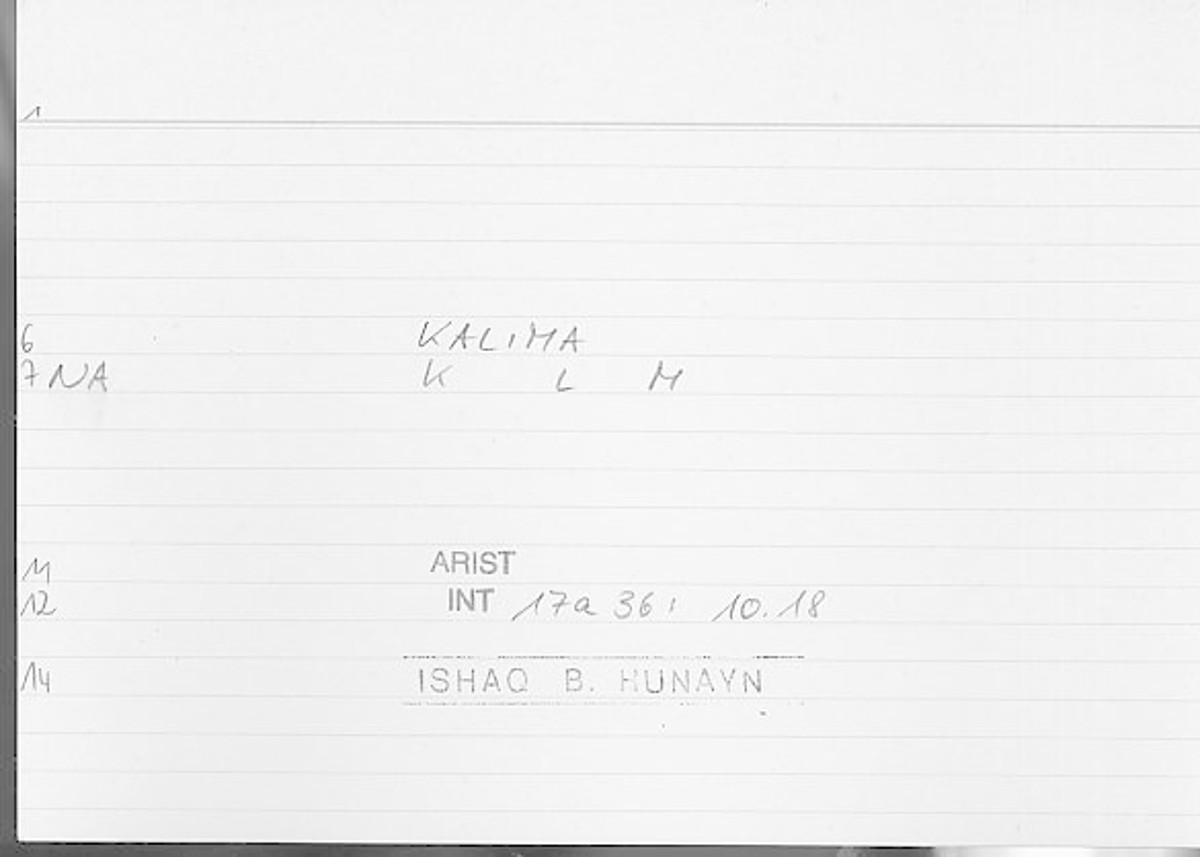 1
6 KALIMA
7 NA K L M
11 ARIST
12 INT 17a 36 : 10.18
14 ISHAQ B. HUNAYN